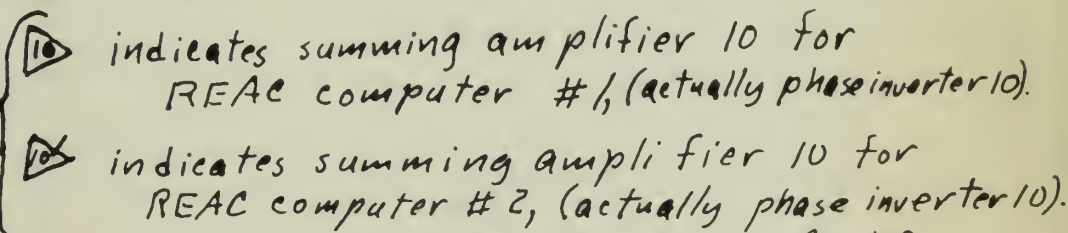 10 indicates summing amplifier 10 for
REAC computer #1, (actually phase inverter 10).
10' indicates summing amplifier 10 for
REAC computer #2, (actually phase inverter 10).